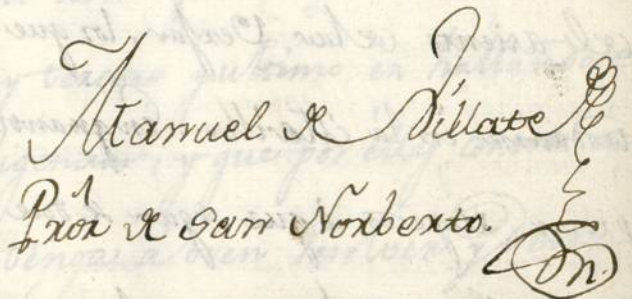 Manuel de Villate
Prior de San Norberto.